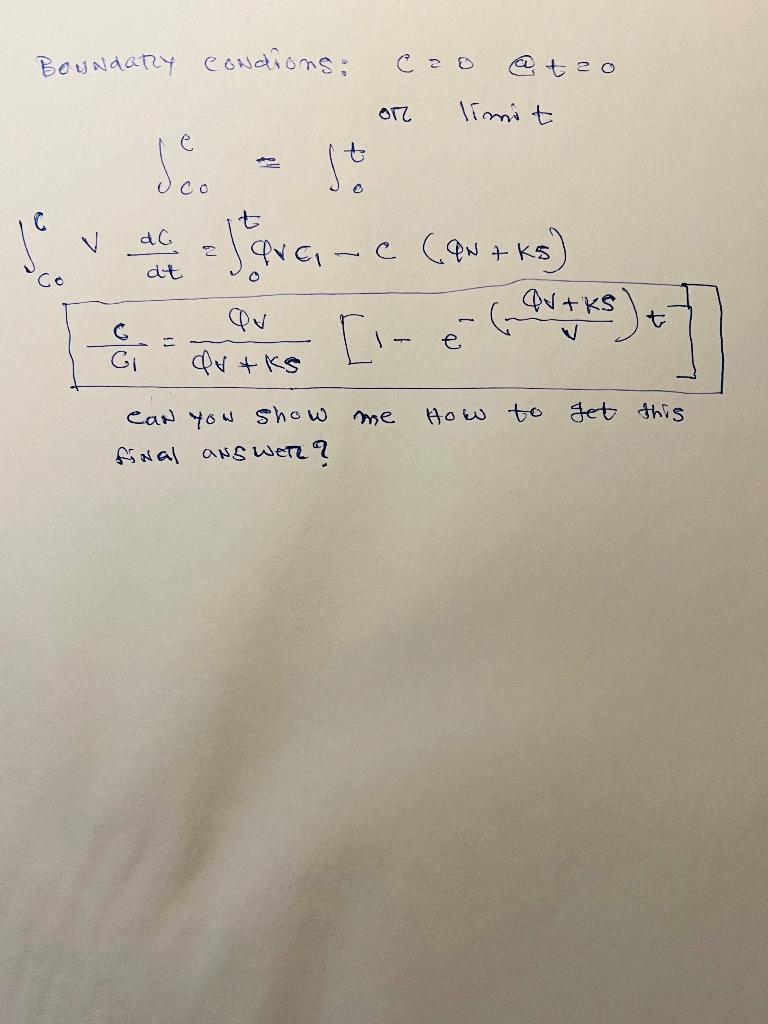 Boundary condions: C = 0 @ t = 0
or limit
∫_{C0}^{C} = ∫_{0}^{t}
∫_{C0}^{C} V dC/dt = ∫_{0}^{t} QvC1 - C (Qv + KS)
C/C1 = Qv/(Qv + KS) [1 - e^{-((Qv + KS)/V) t}]
can you show me How to get this
final answer?